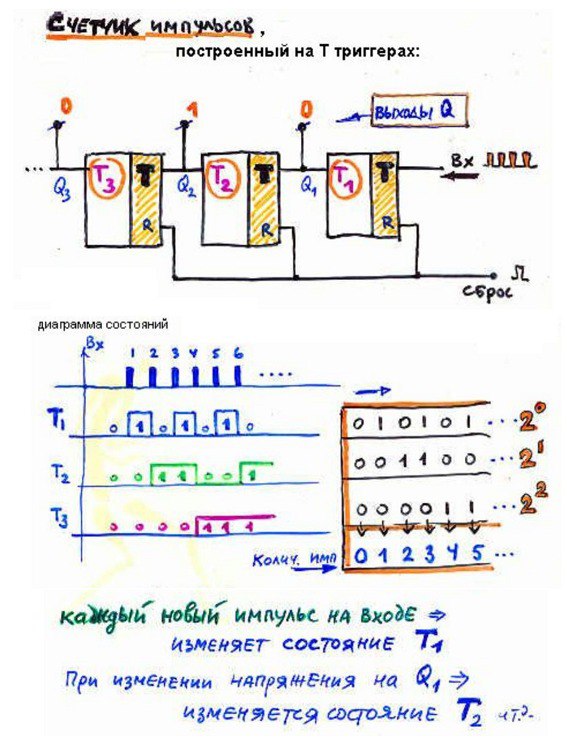 Счетчик импульсов,
построенный на Т триггерах:
0 1 0 выходы Q
... T3 T T2 T T1 T Вх
Q3 Q2 Q1
R R R
сброс
диаграмма состояний
Вх
1 2 3 4 5 6 ....
T1 0 1 0 1 0 1 0
T2 0 0 1 1 0 0 1
T3 0 0 0 0 1 1 1
0 1 0 1 0 1 ... 2^0
0 0 1 1 0 0 ... 2^1
0 0 0 0 1 1 ... 2^2
Колич. имп 0 1 2 3 4 5 ...
каждый новый импульс на входе ⇒
изменяет состояние T1
При изменении напряжения на Q1 ⇒
изменяется состояние T2 и т.д.